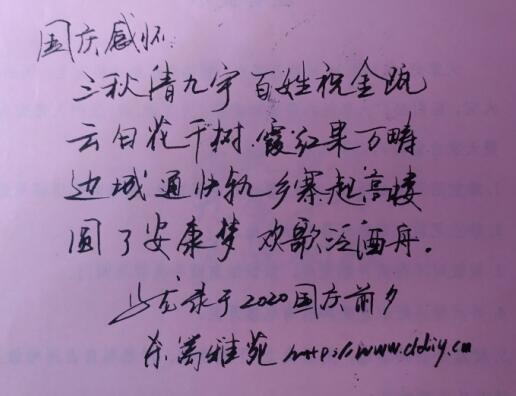 国庆感怀:
三秋清九宇 百姓祝金瓯
云白花千树.霞红果万畴
边城通快轨 乡寨起高楼
圆了安康梦 欢歌泛酒舟。
录于2020国庆前夕
雅苑 https://www.cldiy.cn